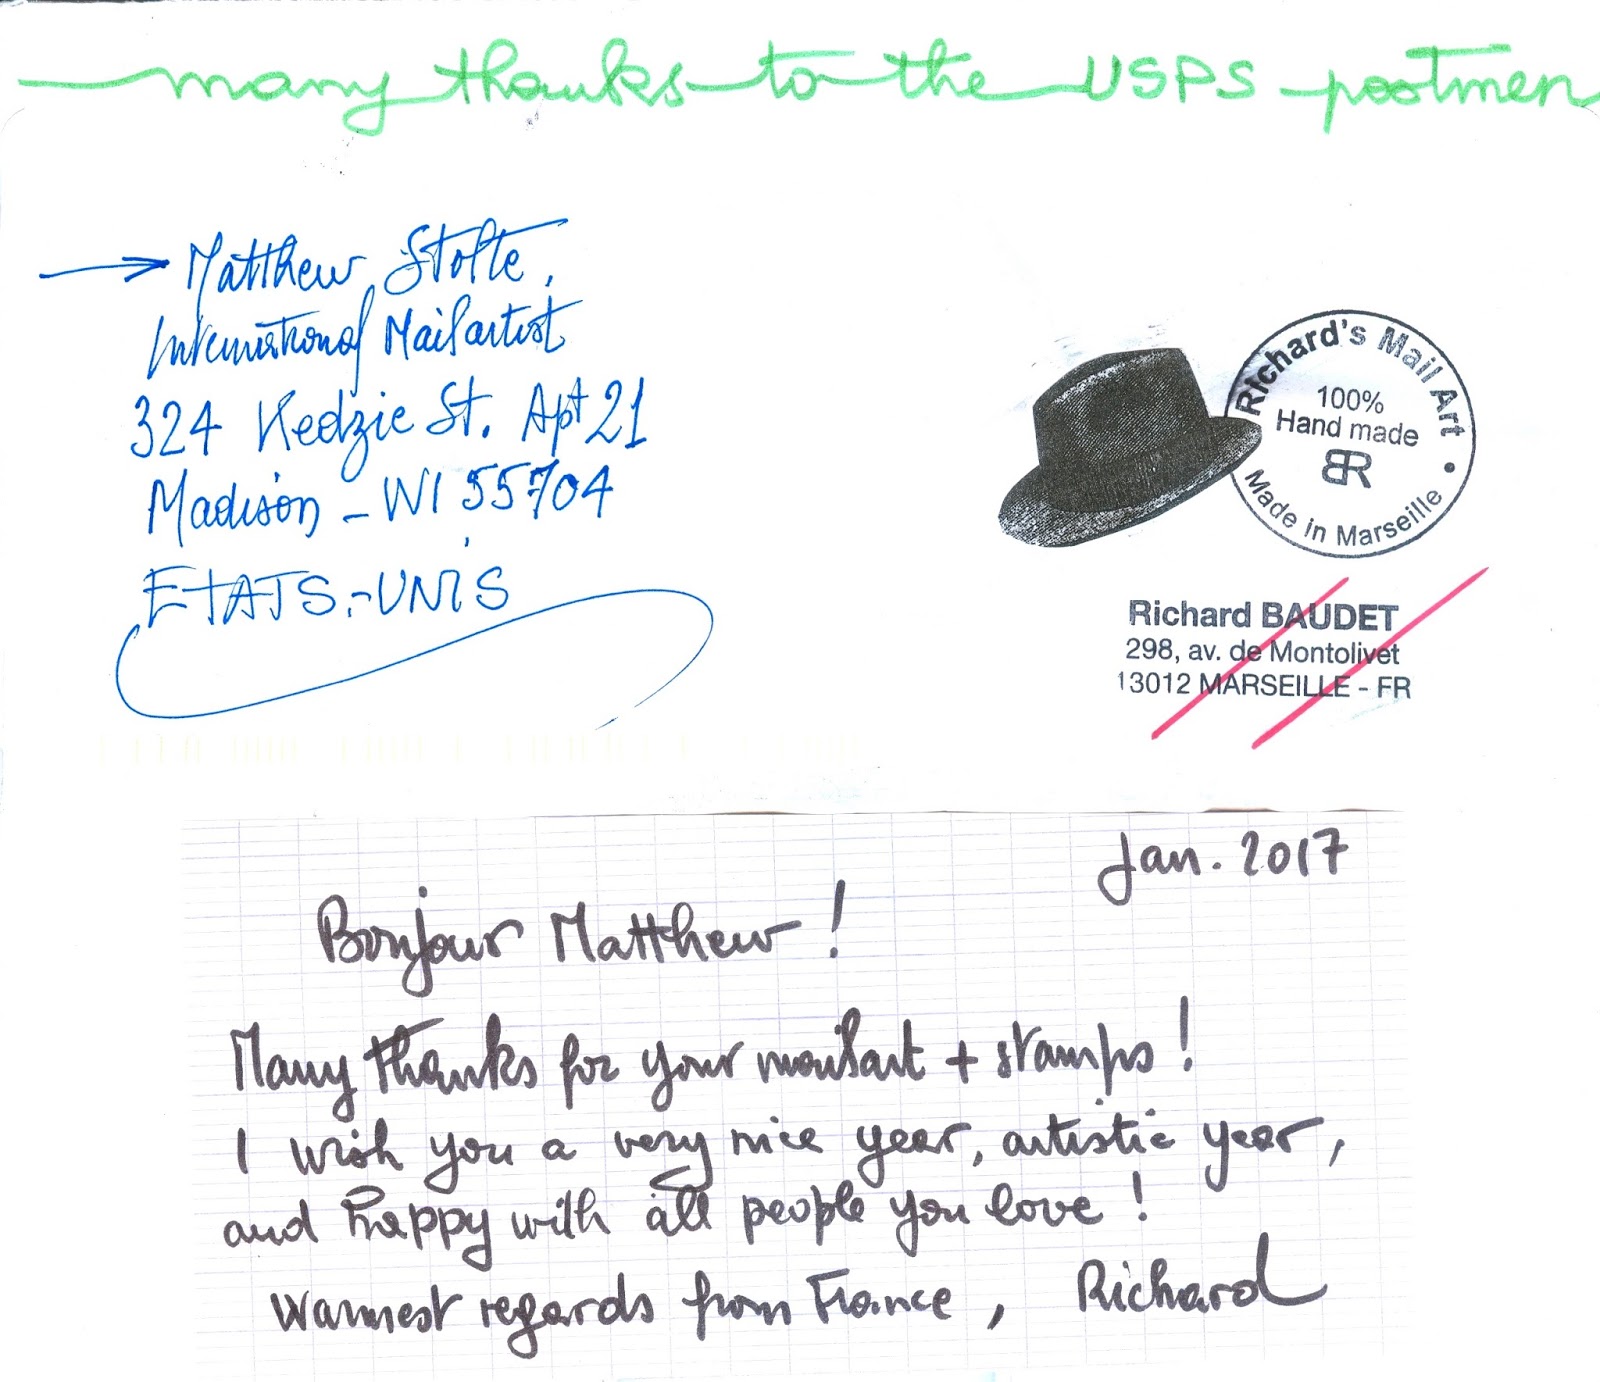 many thanks to the USPS postmen
→ Matthew Stolte,
International Mailartist
324 Kedzie St. Apt 21
Madison - WI 55704
ETATS-UNIS
Richard's Mail Art
100%
Hand made
BR
Made in Marseille •
Richard BAUDET
298, av. de Montolivet
13012 MARSEILLE - FR
Jan. 2017
Bonjour Matthew !
Many thanks for your mailart + stamps !
I wish you a very nice year, artistic year,
and happy with all people you love !
Warmest regards from France, Richard